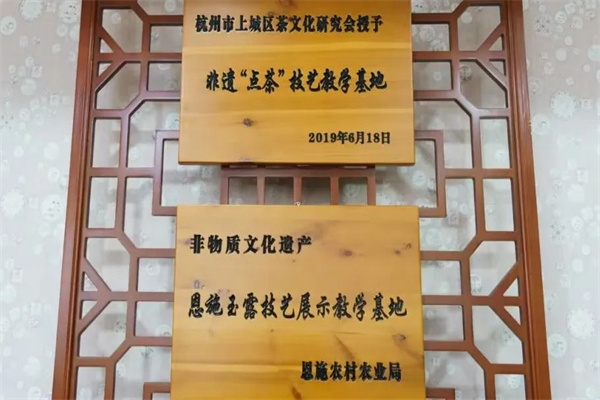 杭州市上城区茶文化研究会授予
非遗“点茶”技艺教学基地
2019年6月18日
非物质文化遗产
恩施玉露技艺展示教学基地
恩施农村农业局